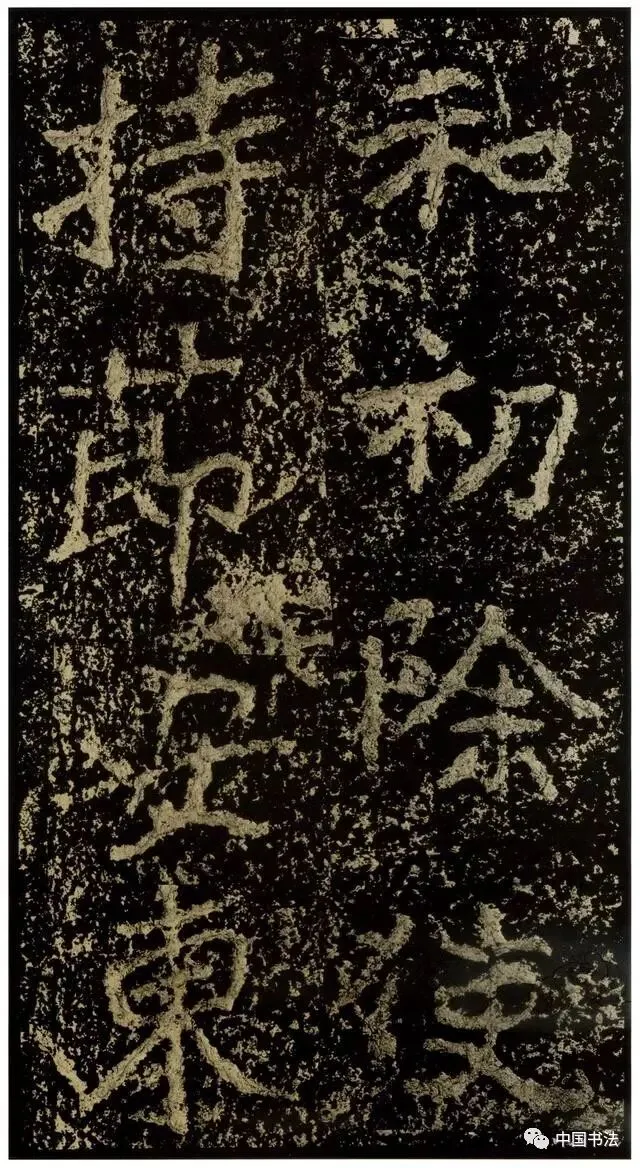 和初除使
持節東
中国书法